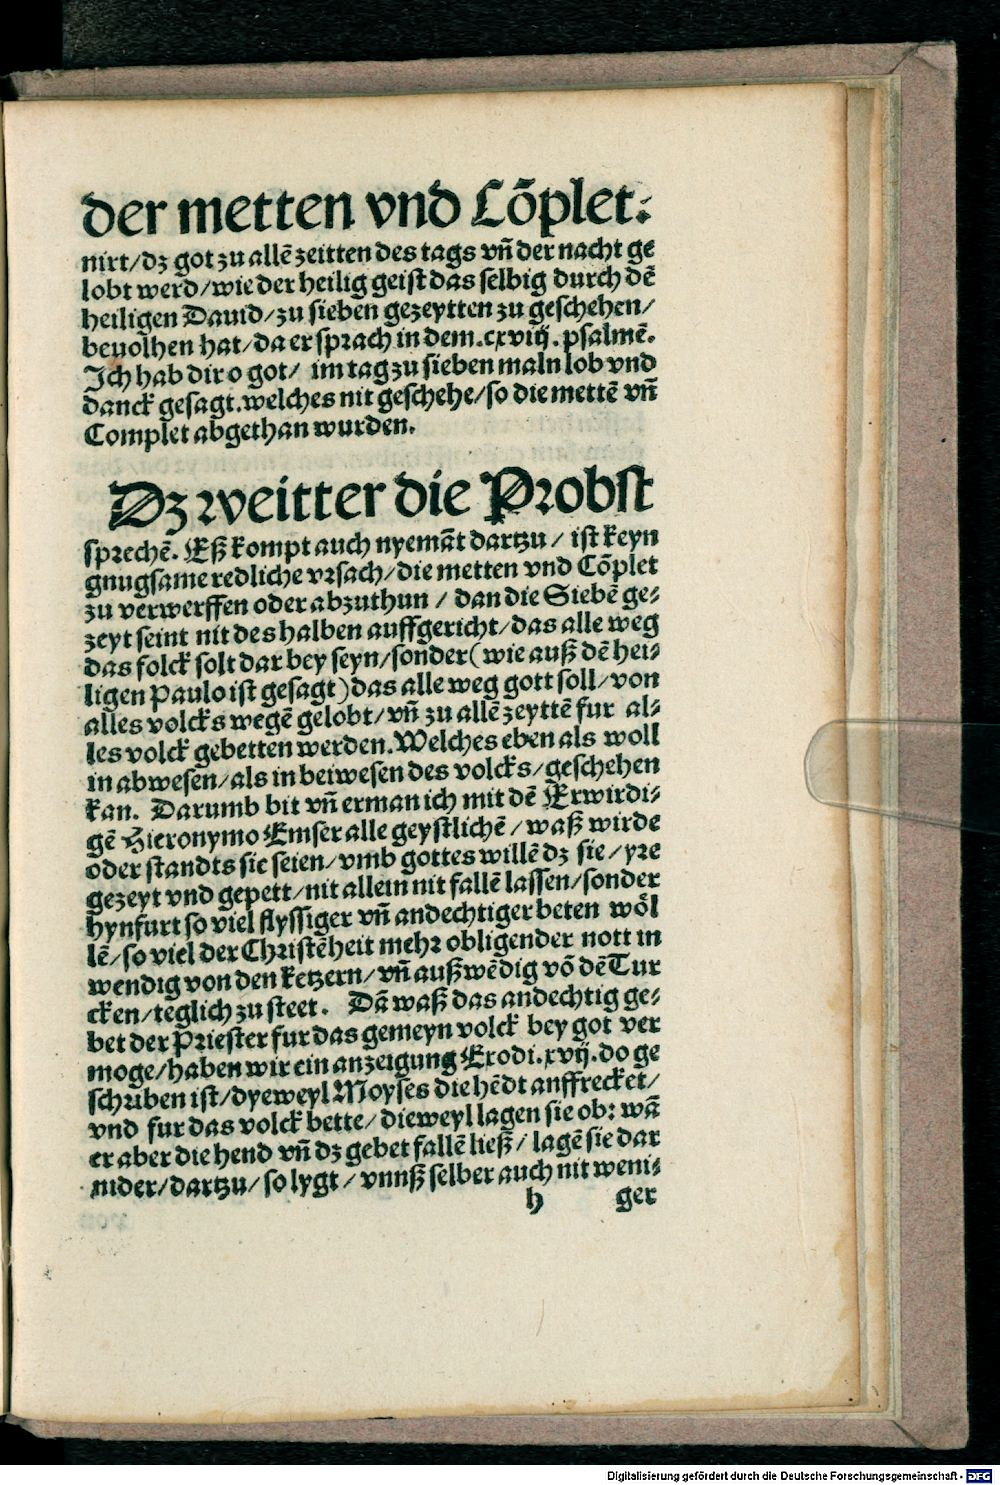 der metten vnd Cõplet:
nirt/dz got zu allẽ zeitten des tags vñ der nacht ge
lobt werd/wie der heilig geist das selbig durch dẽ
heiligen Dauid/zu sieben gezeytten zu geschehen/
beuolhen hat/da er sprach in dem.cxviij.psalmẽ.
Jch hab dir o got/ im tag zu sieben maln lob vnd
danck gesagt.welches nit geschehe/so die mettẽ vñ
Complet abgethan wurden.
Dz weitter die Probst
sprechẽ. Eß kompt auch nyemãt dartzu/ ist keyn
gnugsame redliche vrsach/die metten vnd Cõplet
zu verwerffen oder abzuthun/ dan die Siebẽ ge-
zeyt seint nit des halben auffgericht/das alle weg
das folck solt dar bey seyn/sonder(wie auß dẽ hei-
ligen Paulo ist gesagt)das alle weg gott soll/von
alles volcks wegẽ gelobt/vñ zu allẽ zeyttẽ fur al-
les volck gebetten werden.Welches eben als woll
in abwesen/als in beiwesen des volcks/geschehen
kan. Darumb bit vñ erman ich mit dẽ Erwirdi-
gẽ Hieronymo Emser alle geystlichẽ/waß wirde
oder standts sie seien/vmb gottes willẽ dz sie/yre
gezeyt vnd gepett/nit allein nit fallẽ lassen/sonder
hynfurt so viel flyssiger vñ andechtiger beten wöl
lẽ/so viel der Christẽheit mehr obligender nott in
wendig von den ketzern/vñ außwẽdig võ dẽ Tur
cken/teglich zu steet. Dã waß das andechtig ge-
bet der Priester fur das gemeyn volck bey got ver
moge/haben wir ein anzeigung Exodi.xvij.do ge
schriben ist/dyeweyl Moyses die hẽdt auffrecket/
vnd fur das volck bette/dieweyl lagen sie ob: wã
er aber die hend vñ dz gebet fallẽ ließ/ lagẽ sie dar
nider/dartzu/so lygt/vnnß selber auch nit weni-
h ger
Digitalisierung gefördert durch die Deutsche Forschungsgemeinschaft - DFG